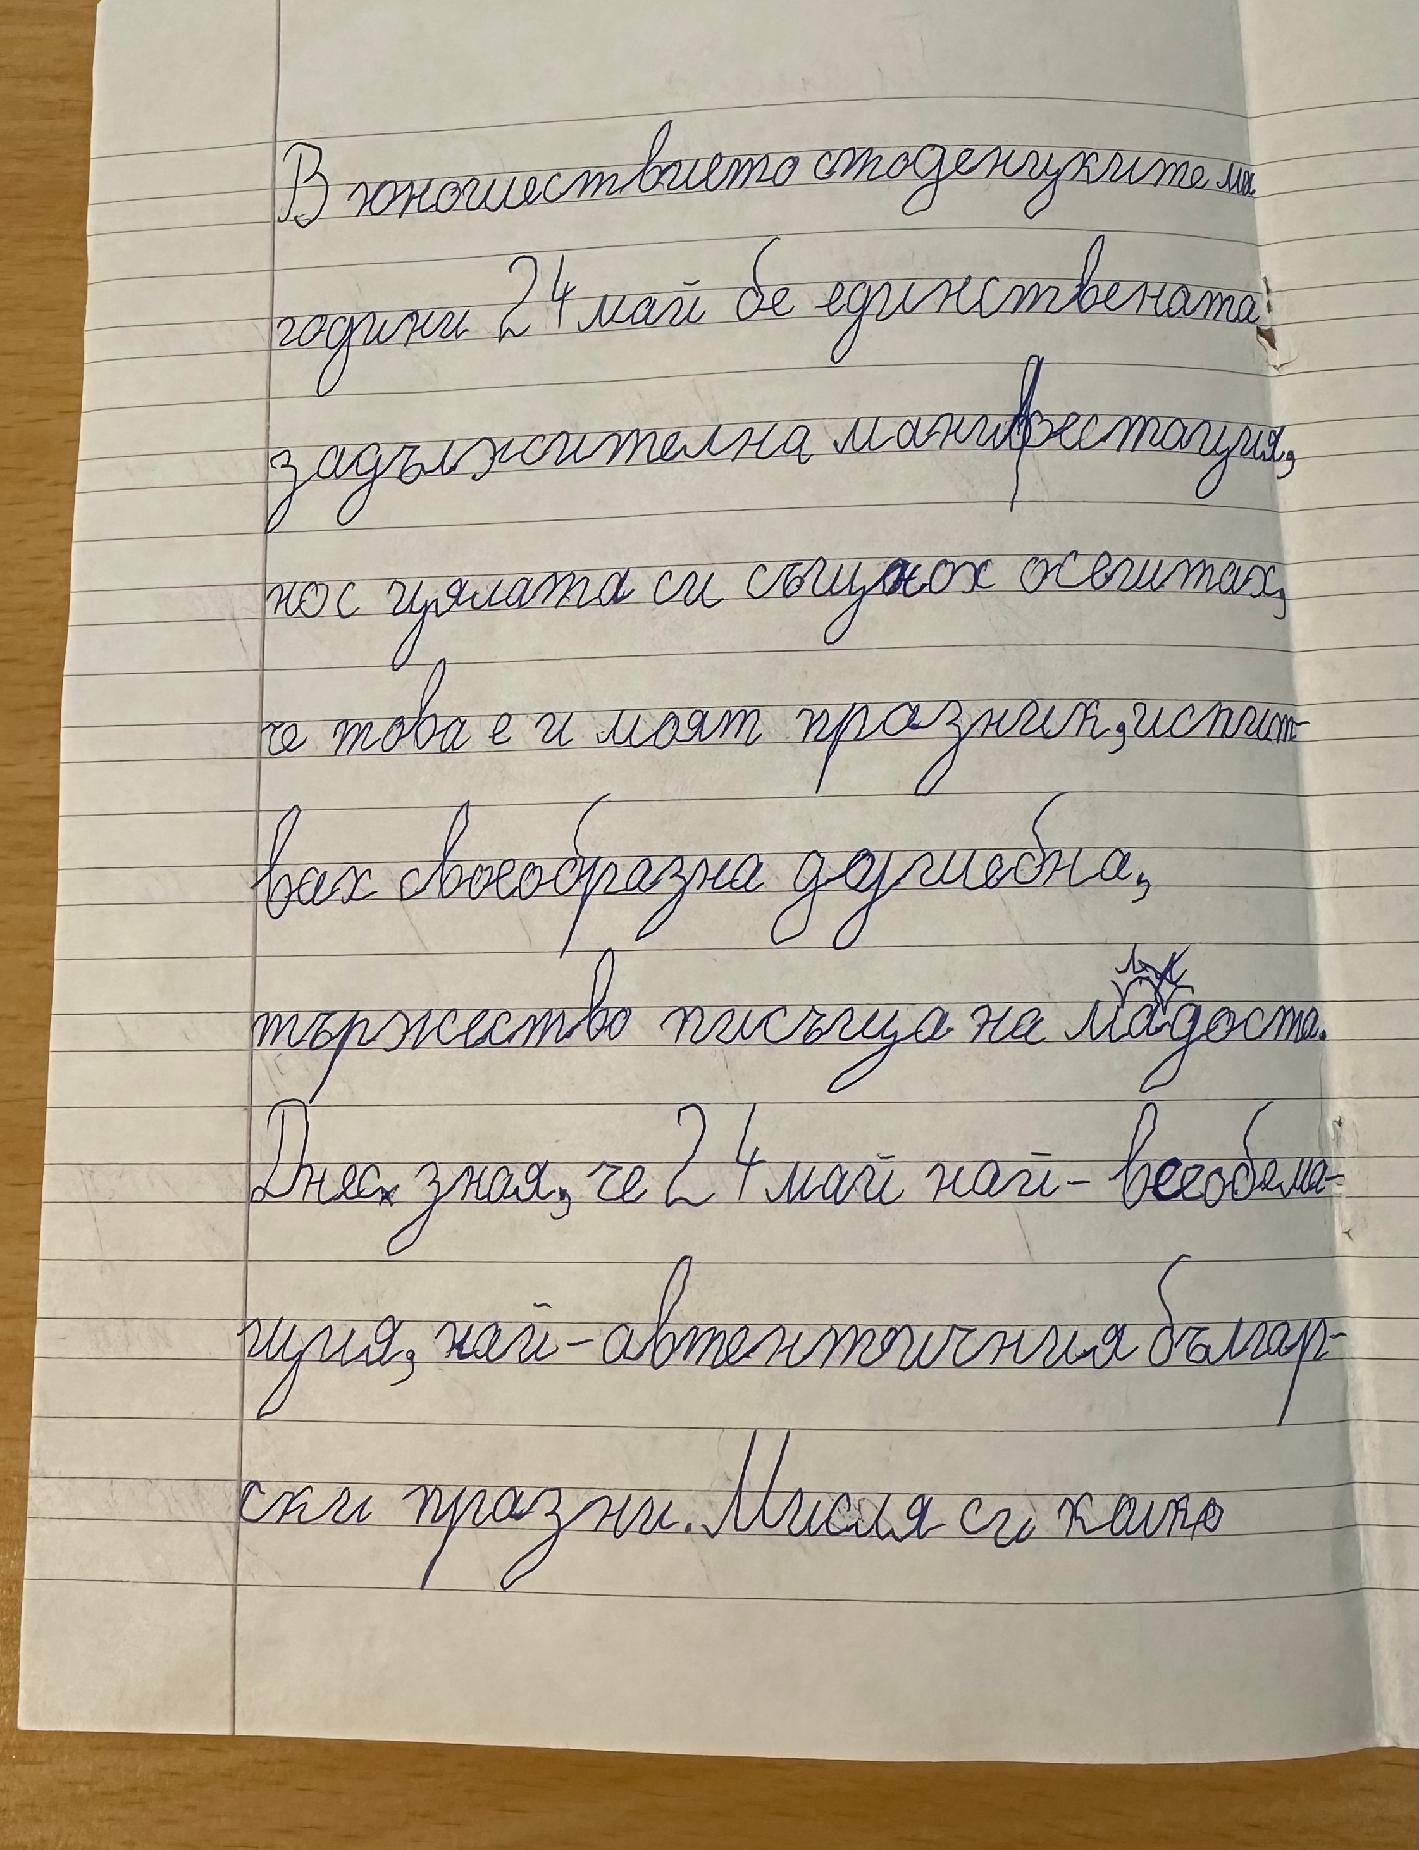 В юношествието стоденчуките ми
години 24 май бе единствената
задължителна манифестация,
но с цялата си същнох осещтах,
че това е и моят празник, испит-
вах своеобразна доушебна,
тържество писъща на мадоста.
Днес зная, че 24 май най-всеобема-
щия, най-автентичния българ-
ски празни. Мисля си како